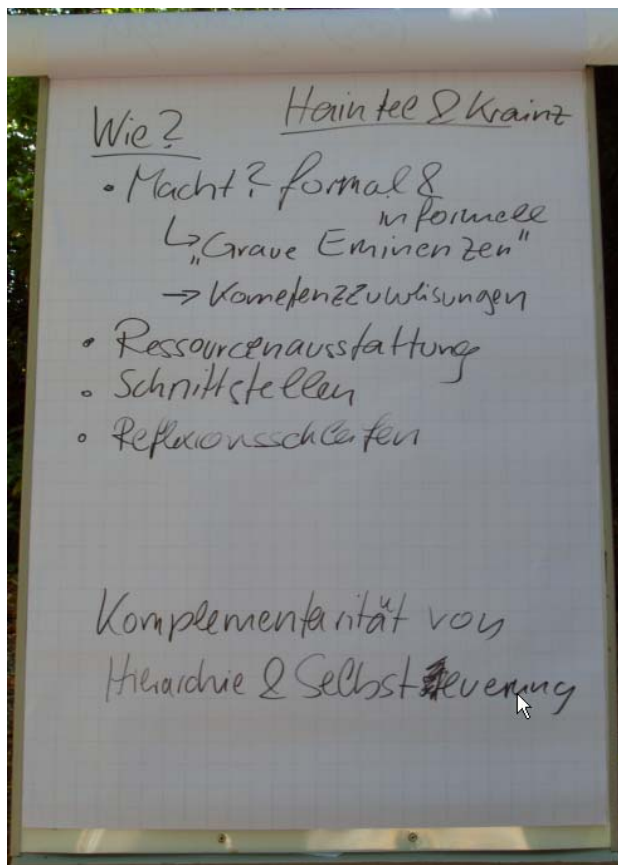 Wie? Haintel & Krainz
• Macht? formal &
informell
↳ "Graue Eminenzen"
→ Kometenzzuweisungen
• Ressourcenausstattung
• Schnittstellen
• Reflexionsschleifen
Komplementarität von
Hierarchie & Selbststeuerung